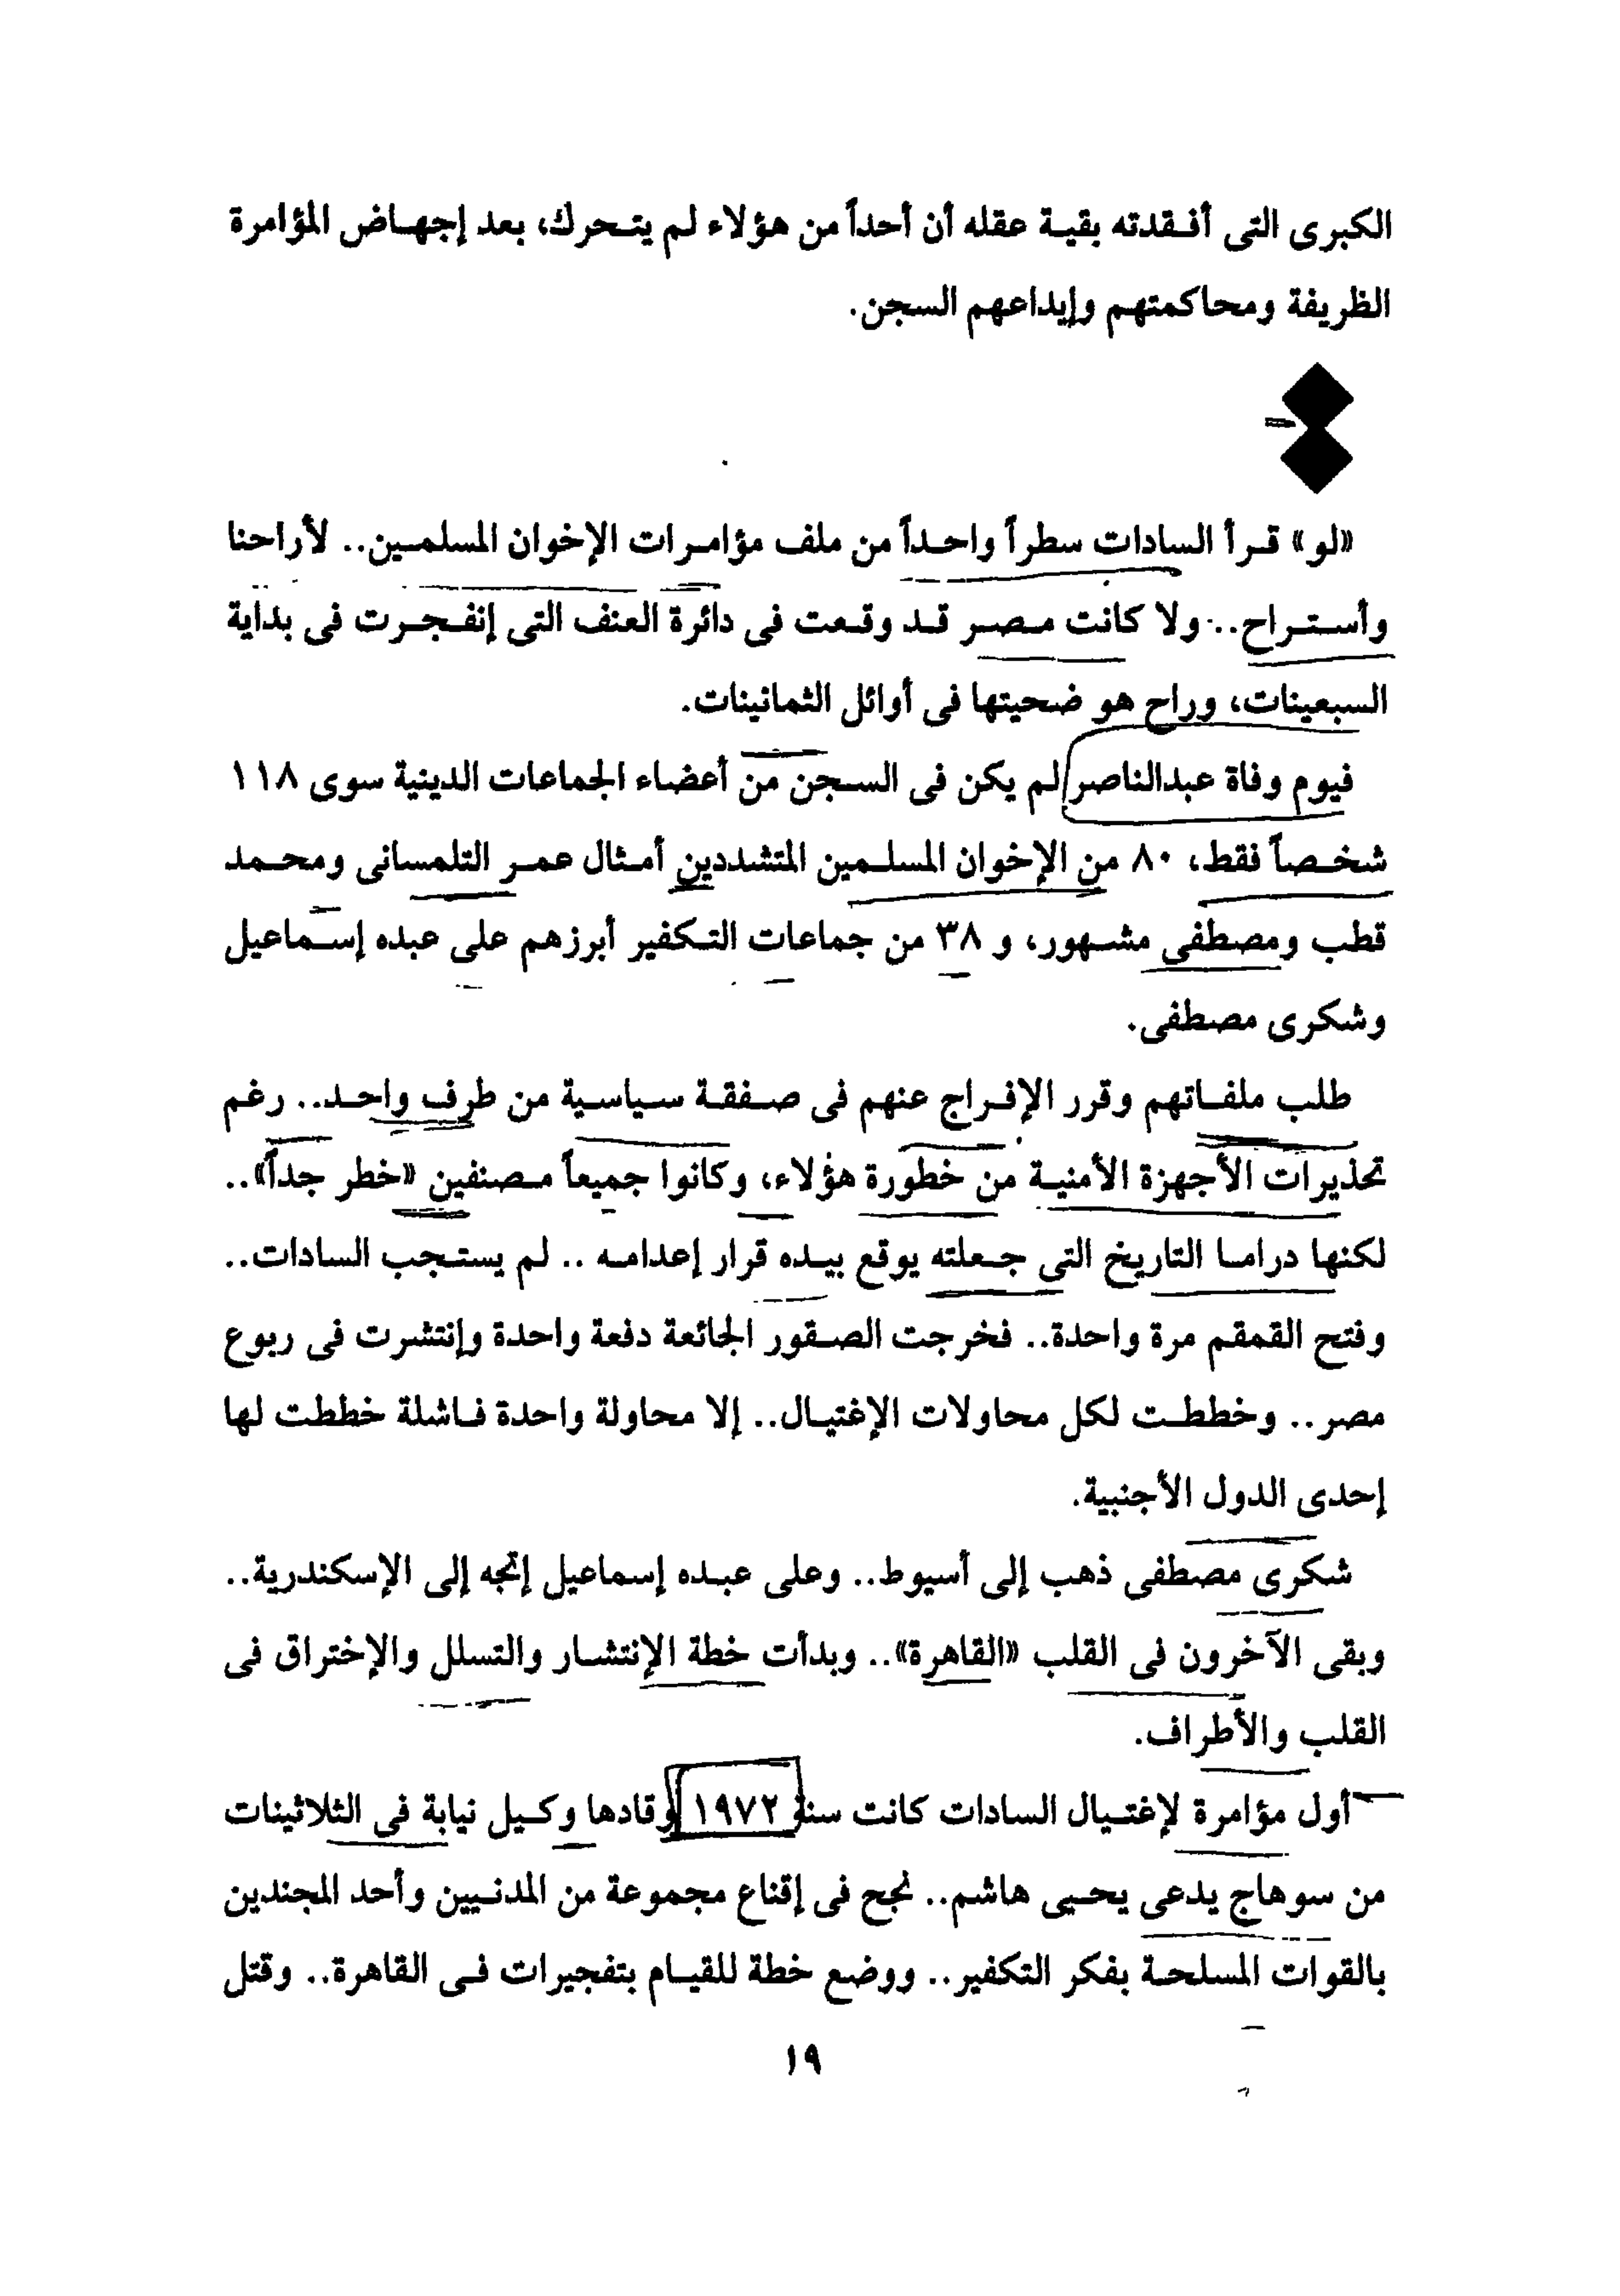 الكبرى التى أفقدته بقية عقله أن أحداً من هؤلاء لم يتحرك، بعد إجهاض المؤامرة
الظريفة ومحاكمتهم وإيداعهم السجن.
«لو» قرأ السادات سطراً واحداً من ملف مؤامرات الإخوان المسلمين.. لأراحنا
وأستراح.. ولا كانت مصر قد وقعت فى دائرة العنف التى إنفجرت فى بداية
السبعينات، وراح هو ضحيتها فى أوائل الثمانينات.
فيوم وفاة عبدالناصر لم يكن فى السجن من أعضاء الجماعات الدينية سوى ١١٨
شخصاً فقط، ٨٠ من الإخوان المسلمين المتشددين أمثال عمر التلمسانى ومحمد
قطب ومصطفى مشهور، و ٣٨ من جماعات التكفير أبرزهم على عبده إسماعيل
وشكرى مصطفى.
طلب ملفاتهم وقرر الإفراج عنهم فى صفقة سياسية من طرف واحد.. رغم
تحذيرات الأجهزة الأمنية من خطورة هؤلاء، وكانوا جميعاً مصنفين «خطر جداً»..
لكنها دراما التاريخ التى جعلته يوقع بيده قرار إعدامه .. لم يستجب السادات..
وفتح القمقم مرة واحدة.. فخرجت الصقور الجائعة دفعة واحدة وإنتشرت فى ربوع
مصر.. وخططت لكل محاولات الإغتيال.. إلا محاولة واحدة فاشلة خططت لها
إحدى الدول الأجنبية.
شكرى مصطفى ذهب إلى أسيوط.. وعلى عبده إسماعيل إتجه إلى الإسكندرية..
وبقى الآخرون فى القلب «القاهرة».. وبدأت خطة الإنتشار والتسلل والإختراق فى
القلب والأطراف.
أول مؤامرة لإغتيال السادات كانت سنة ١٩٧٢ وقادها وكيل نيابة فى الثلاثينات
من سوهاج يدعى يحيى هاشم.. نجح فى إقناع مجموعة من المدنيين وأحد المجندين
بالقوات المسلحة بفكر التكفير.. ووضع خطة للقيام بتفجيرات فى القاهرة.. وقتل
١٩